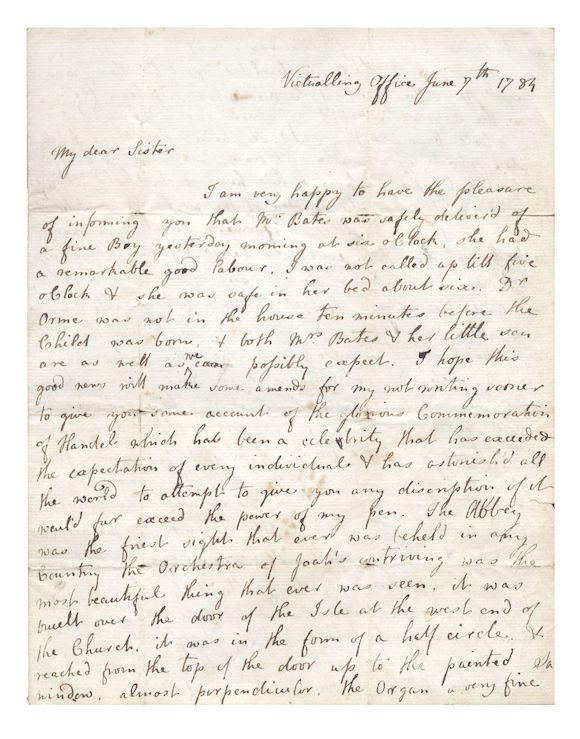 Victualling Office June 7th 1784
My dear Sister
I am very happy to have the pleasure
of informing you that Mrs Bates was safely deliverd of
a fine Boy yesterday morning at six oClock, she had
a remarkable good labour, I was not called up till five
oClock & she was safe in her bed about six. Dr
Orme was not in the house ten minutes before the
Child was born, & both Mrs Bates & her little son
are as well as we can possibly expect. I hope this
good news will make some amends for my not writing sooner
to give you some account of the glorious Commemoration
of Handel which has been a celebrity that has exceeded
the expectation of every individual & has astonish'd all
the world to attempt to give you any discription of it
would far exceed the power of my pen. The Abbey
was the finest sight that ever was beheld in any
Country the Orchestra of Joah's contriving was the
most beautiful thing that ever was seen, it was
built over the door of the Isle at the west end of
the Church, it was in the form of a half circle, &
reached from the top of the door up to the painted
window, almost perpendiculor, the Organ a very fine